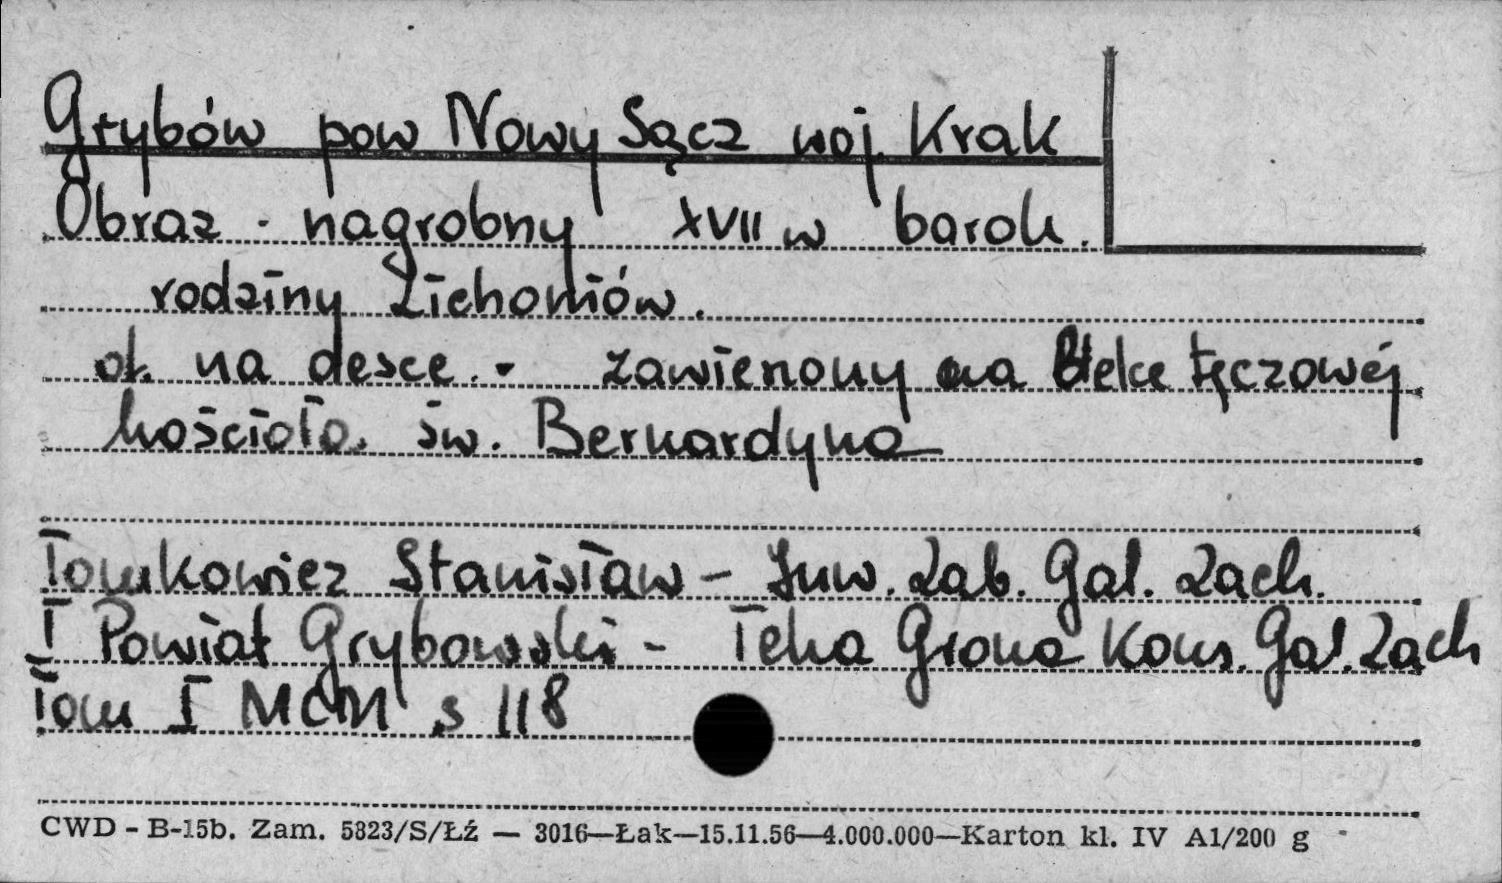 Grybów pow Nowy Sącz woj. Krak
Obraz - nagrobny XVII w barok.
rodziny Zichoniów.
ol. na desce. - zawieszony na Belce tęczowej
kościoła. św. Bernardyna
Tomkowicz Stanisław - Inw. Zab. Gal. Zach.
I Powiat Grybowski - Teka Grona Kons. Gal. Zach
Tom I MCM s 118
CWD - B-15b. Zam. 5823/S/Łź — 3016—Łak—15.11.56—4.000.000—Karton kl. IV A1/200 g